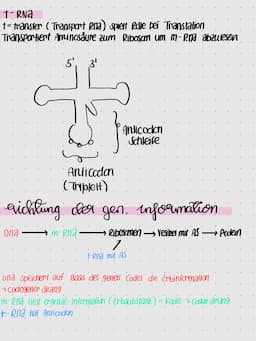 t-RNA
t = transfer (Transport RNA) spielt Rolle bei Translation
Transportiert Aminosäure zum Ribosom um m-RNA abzulesen
5' 3'
Anticodon
Schleife
Anticodon
(Triplett)
richtung der gen. information
DNA → m-RNA → Ribosomen → mit AS → Protein
t-RNA mit AS
DNA speichert auf Basis des genet. Codes die Erbinformation
→ codogener Strang
m-RNA liest Information → Kopie → codon Strang
t-RNA hat Anticodon